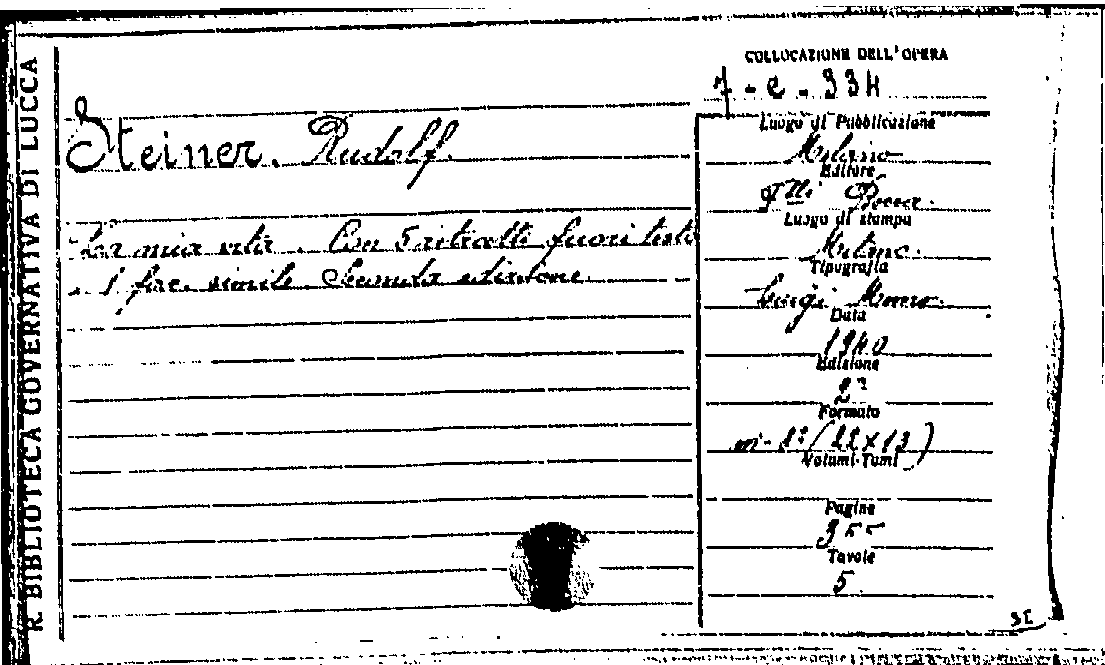 R. BIBLIOTECA GOVERNATIVA DI LUCCA
COLLOCAZIONE DELL'OPERA
7 - e - 334
Steiner. Rudolf.
La mia vita. Con 5 ritratti fuori testo
1 fac. simile Seconda edizione
Luogo di Pubblicazione
Milano
Editore
Flli Bocca.
Luogo di stampa
Milano.
Tipografia
Luigi
Data
1940
Edizione
2ª
Formato
in-8° (22x13)
Volumi-Tomi
Pagine
355
Tavole
5